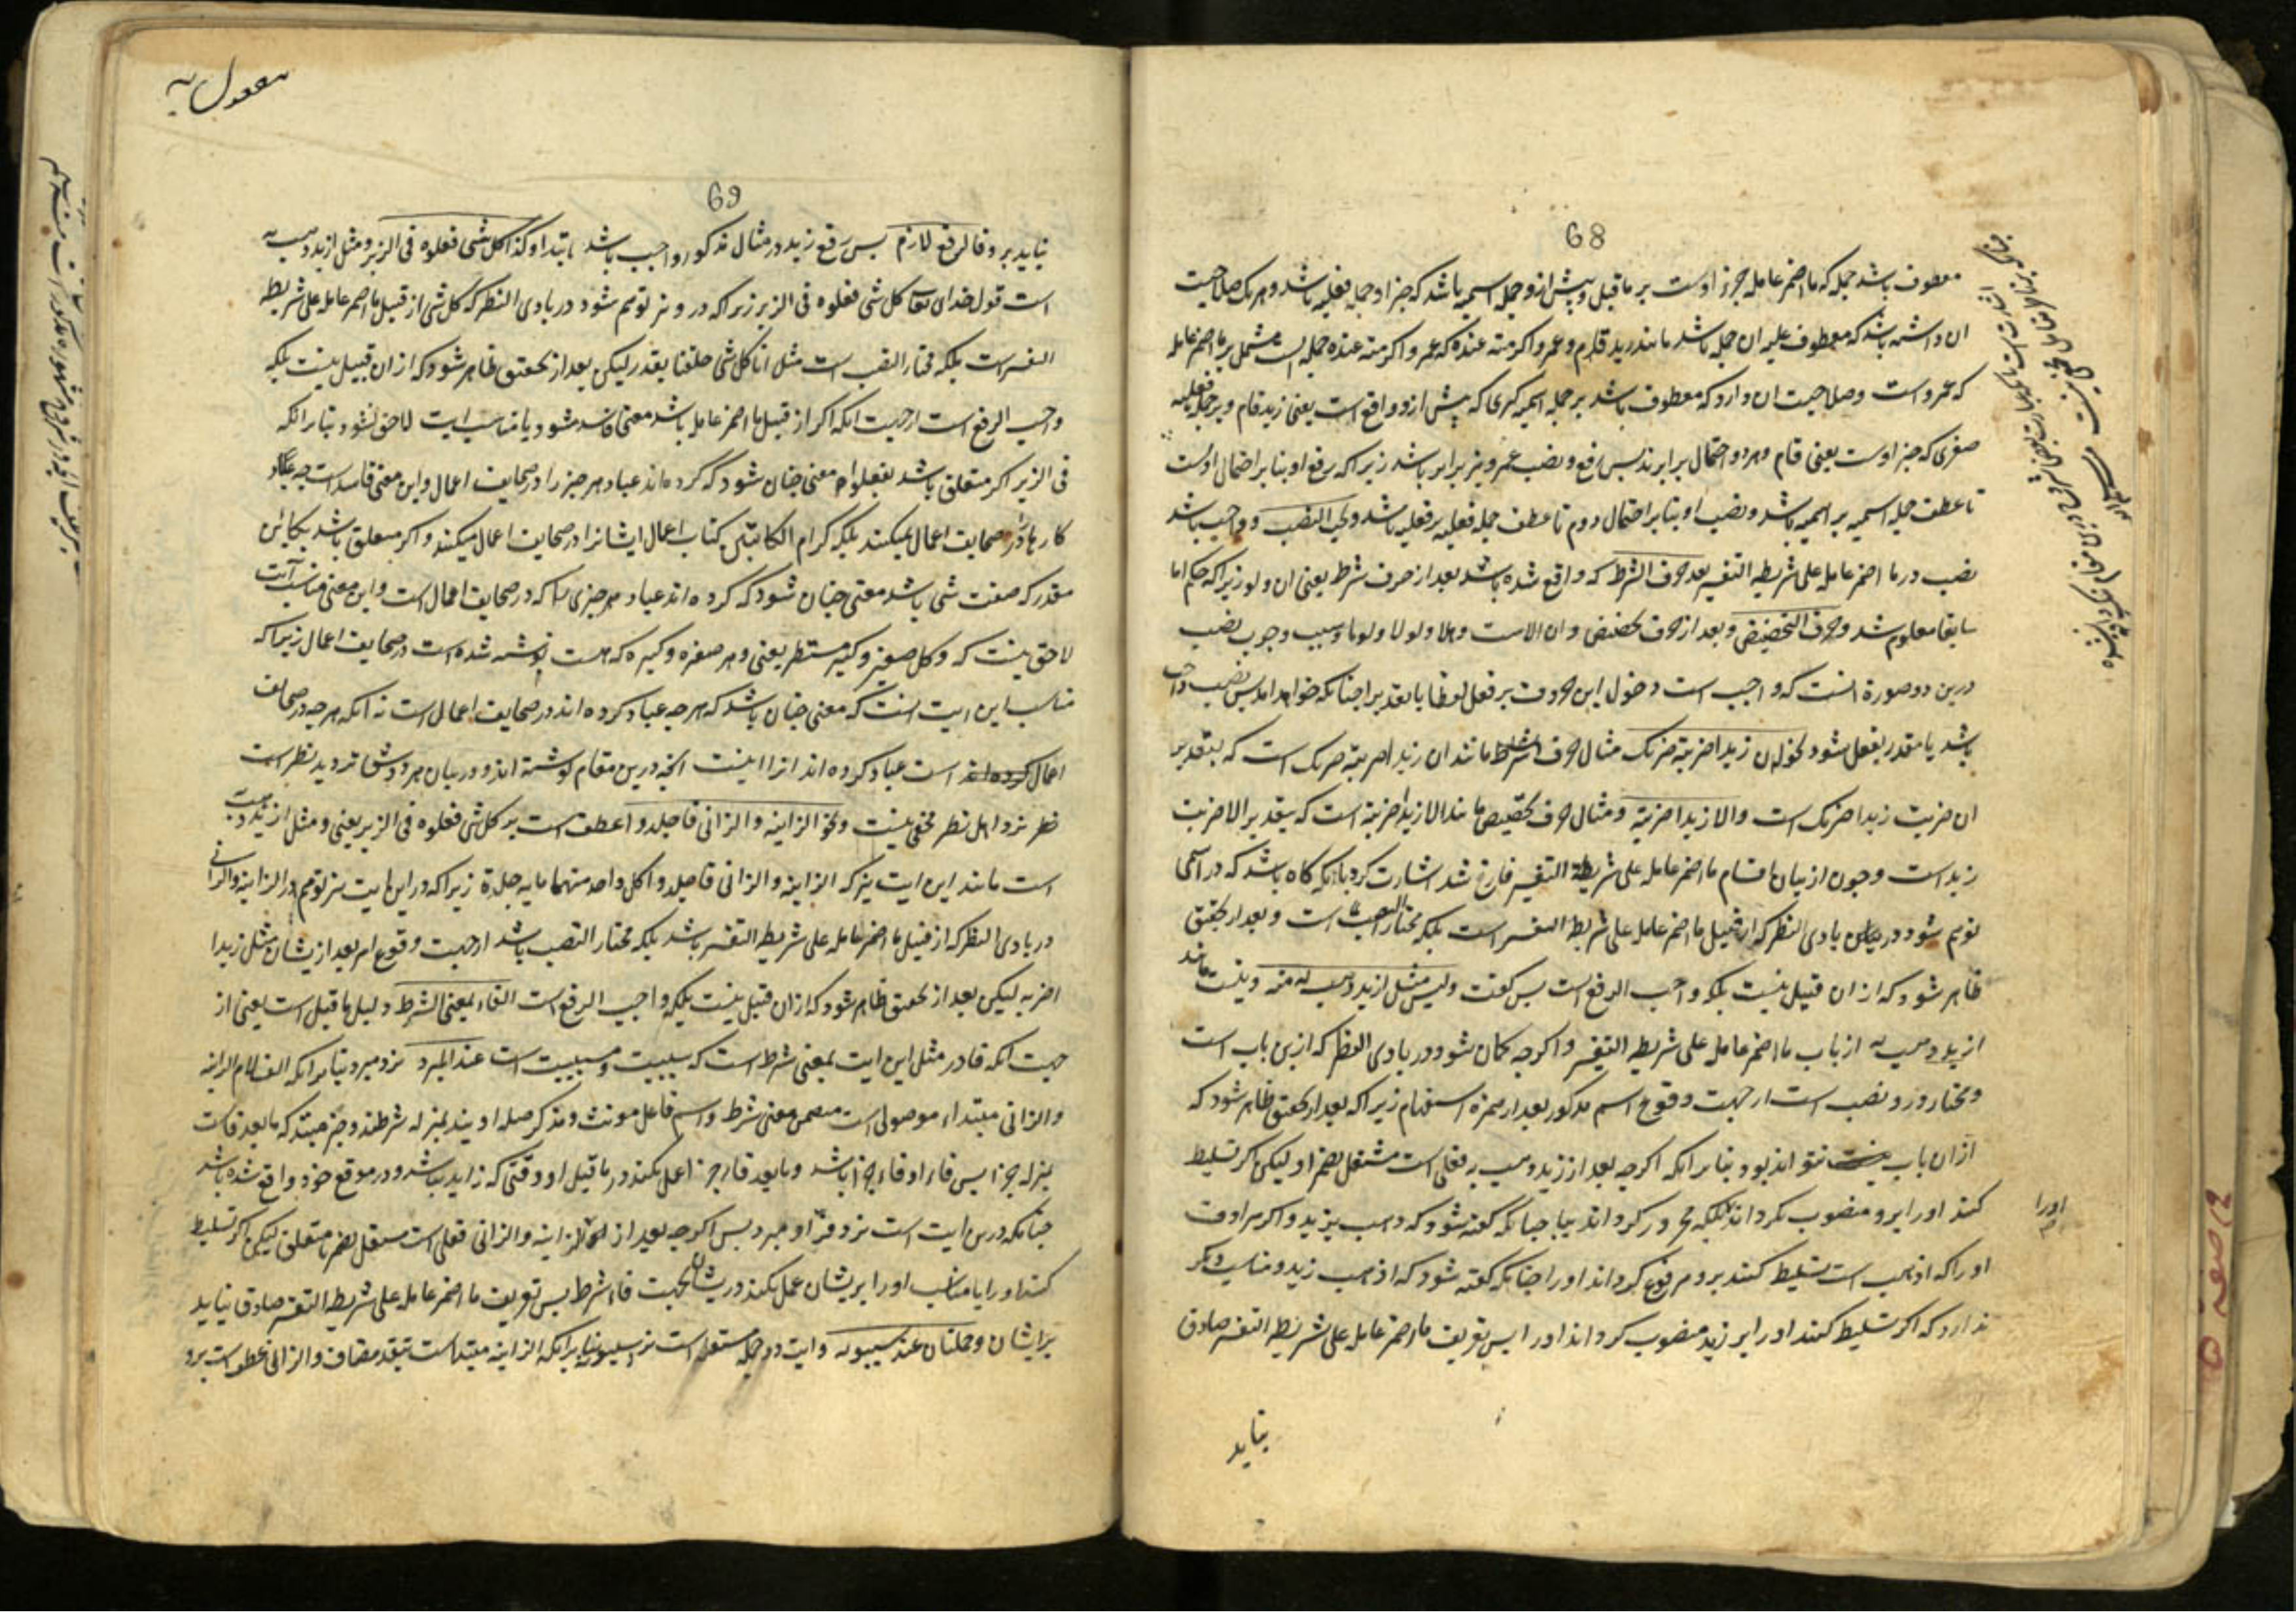 68
معطوف باشد جمله که ما اضمر عامله جزو اوست بر ماقبل و پیش ازو جمله اسمیه باشد که خبر او جمله فعلیه باشد و هر یک صلاحیت
ان داشته باشد که معطوف علیه ان جمله باشد مانند زید قام و عمرو اکرمته عنده که عمرو اکرمته عنده جمله ایست مشتمل بر ما اضمر عامله
که عمرو است و صلاحیت ان دارد که معطوف باشد بر جمله اسمیه کبری که پیش ازو واقع است یعنی زید قام و بر جمله فعلیه
صغری که خبر اوست یعنی قام و هر دو احتمال برابرند پس رفع و نصب عمرو نیز برابر باشد زیرا که رفع او بنا بر احتمال اولست
تا عطف جمله اسمیه بر اسمیه باشد و نصب او بنا بر احتمال دوم تا عطف جمله فعلیه بر فعلیه باشد و یجب النصب و واجب باشد
نصب در ما اضمر عامله علی شریطه التفسیر بعد حرف الشرط که واقع شده باشد بعد از حرف شرط یعنی ان و لو زیرا که حکم اما
سابقا معلوم شد و حرف التخضیض و بعد از حرف تخضیض و ان الاست و هلا و لولا و لوما و سبب وجوب نصب
درین دو صورة انست که واجب است دخول این حروف بر فعل لفظا یا تقدیرا چنانکه خواهد امد پس نصب واجب
باشد یا مقدر بفعل شود نحو ان زیدا ضربته ضربک مثال حرف الشرط مانند ان زیدا ضربته ضربک است که بتقدیر
ان ضربت زیدا ضربک است و الا زیدا ضربته و مثال حرف تخضیض مانند الا زیدا ضربته است که بتقدیر الا ضربت
زید است و چون از بیان اقسام ما اضمر عامله علی شریطة التفسیر فارغ شد اشارت کرد بانکه کاه باشد که در اسمی
توهم شود در بادی النظر که از قبیل ما اضمر عامله علی شریطه التفسیر است بلکه مختار النصب است و بعد از تحقیق
ظاهر شود که از ان قبیل نیست بلکه واجب الرفع است پس کفت و لیس مثل ازید ذهب به منه و نیست مانند
ازید ذهب به از باب ما اضمر عامله علی شریطه التفسیر و اکرچه کمان شود در بادی النظر که ازین باب است
و مختار درو نصب است از جهت وقوع اسم مذکور بعد از همزه استفهام زیرا که بعد از تحقیق ظاهر شود که
از ان باب نتواند بود بنا برانکه اکرچه بعد از زید ذهب به فعلی است مشتغل بضمیر او لیکن اکر تسلیط
کنند او را برو منصوب نکرداند بلکه مجرور کرداند ببا چنانکه کفته شود که ذهب بزید و اکر مرادف
او را که اذهب است تسلیط کنند برو مرفوع کرداند او را چنانکه کفته شود که اذهب زید و مناسب دیکر
ندارد که اکر تسلیط کنند او را بر زید منصوب کرداند او را پس تعریف ما اضمر عامله علی شریطه التفسیر صادق
نیاید
اورا
69
نیاید برو فالرفع لازم پس رفع زید در مثال مذکور واجب باشد بابتدا و کذا کل شی فعلوه فی الزبر و مثل ازید ذهب به
است قول خدای تعالی کل شی فعلوه فی الزبر زیرا که درو نیز توهم شود در بادی النظر که کل شی از قبیل ما اضمر عامله علی شریطه
التفسیر است بلکه مختار النصب است مثل انا کل شی خلقناه بقدر لیکن بعد از تحقیق ظاهر شود که از ان قبیل نیست بلکه
واجب الرفع است از جهت انکه اکر از قبیل ما اضمر عامله باشد معنی فاسد میشود یا مناسب ایت لاحق نشود بنا برانکه
فی الزبر اکر متعلق باشد بفعلوا معنی چنان شود که کرده اند عباد هر چیز را در صحایف اعمال و این معنی فاسد است چه عباد
کارها را در صحایف اعمال نمیکنند بلکه کرام الکاتبین کتاب اعمال ایشانرا در صحایف اعمال میکنند و اکر متعلق باشد بکاین
مقدر که صفت شی باشد معنی چنان شود که کرده اند عباد هر چیزی را که در صحایف اعمال است و این معنی مناسب آیت
لاحق نیست که و کل صغیر و کبیر مستطر یعنی و هر صغیره و کبیره که هست نوشته شده است در صحایف اعمال زیرا که
مناسب این ایت انست که معنی چنان باشد که هرچه عباد کرده اند در صحایف اعمال است نه انکه هرچه در صحایف
اعمال است عباد کرده اند انرا اینست انچه درین مقام نوشته اند و در بیان هر دو شق تردید نظر است
نظر نزد اهل نظر مخفی نیست و نحو الزانیة و الزانی فاجلدوا عطف است بر کل شی فعلوه فی الزبر یعنی و مثل ازید ذهب به
است مانند این ایت نیز که الزانیة و الزانی فاجلدوا کل واحد منهما مایه جلدة زیرا که در این ایت نیز توهم در الزانیة و الزانی
در بادی النظر که از قبیل ما اضمر عامله علی شریطه التفسیر باشد بلکه مختار النصب باشد از جهت وقوع امر بعد ازیشان مثل زیدا
اضربه لیکن بعد از تحقیق ظاهر شود که از ان قبیل نیست بلکه واجب الرفع است الفاء بمعنی الشرط دلیل ماقبل است یعنی از
جهت انکه فا در مثل این ایت بمعنی شرط است که سببیت و مسببیت است عند المبرد نزد مبرد بنا برانکه الف لام الزانیه
و الزانی مبتداء موصولی است متضمن معنی شرط و اسم فاعل مونث و مذکر صله اویند بمنزله شرطند و خبر مبتدا که مابعد فاست
بمنزله جزا پس فاء او فاء جزا باشد و مابعد فا جزا عمل نکند در ماقبل او وقتی که زاید نباشد و در موقع خود واقع شده باشد
چنانکه درین ایت است نزد فرا و مبرد پس اکرچه بعد از الزانیه و الزانی فعلی است مشتغل بضمیر یا متعلق لیکن اکر تسلیط
کنند او را یا مناسب او را بریشان عمل نکند دریشان بجهت فاء شرط پس تعریف ما اضمر عامله علی شریطه التفسیر صادق نیاید
بر ایشان و جملتان عند سیبویه و ایت دو جمله مستقله است نزد سیبویه بنا برانکه الزانیه مبتدا است بتقدیر مضاف و الزانی معطوفست برو